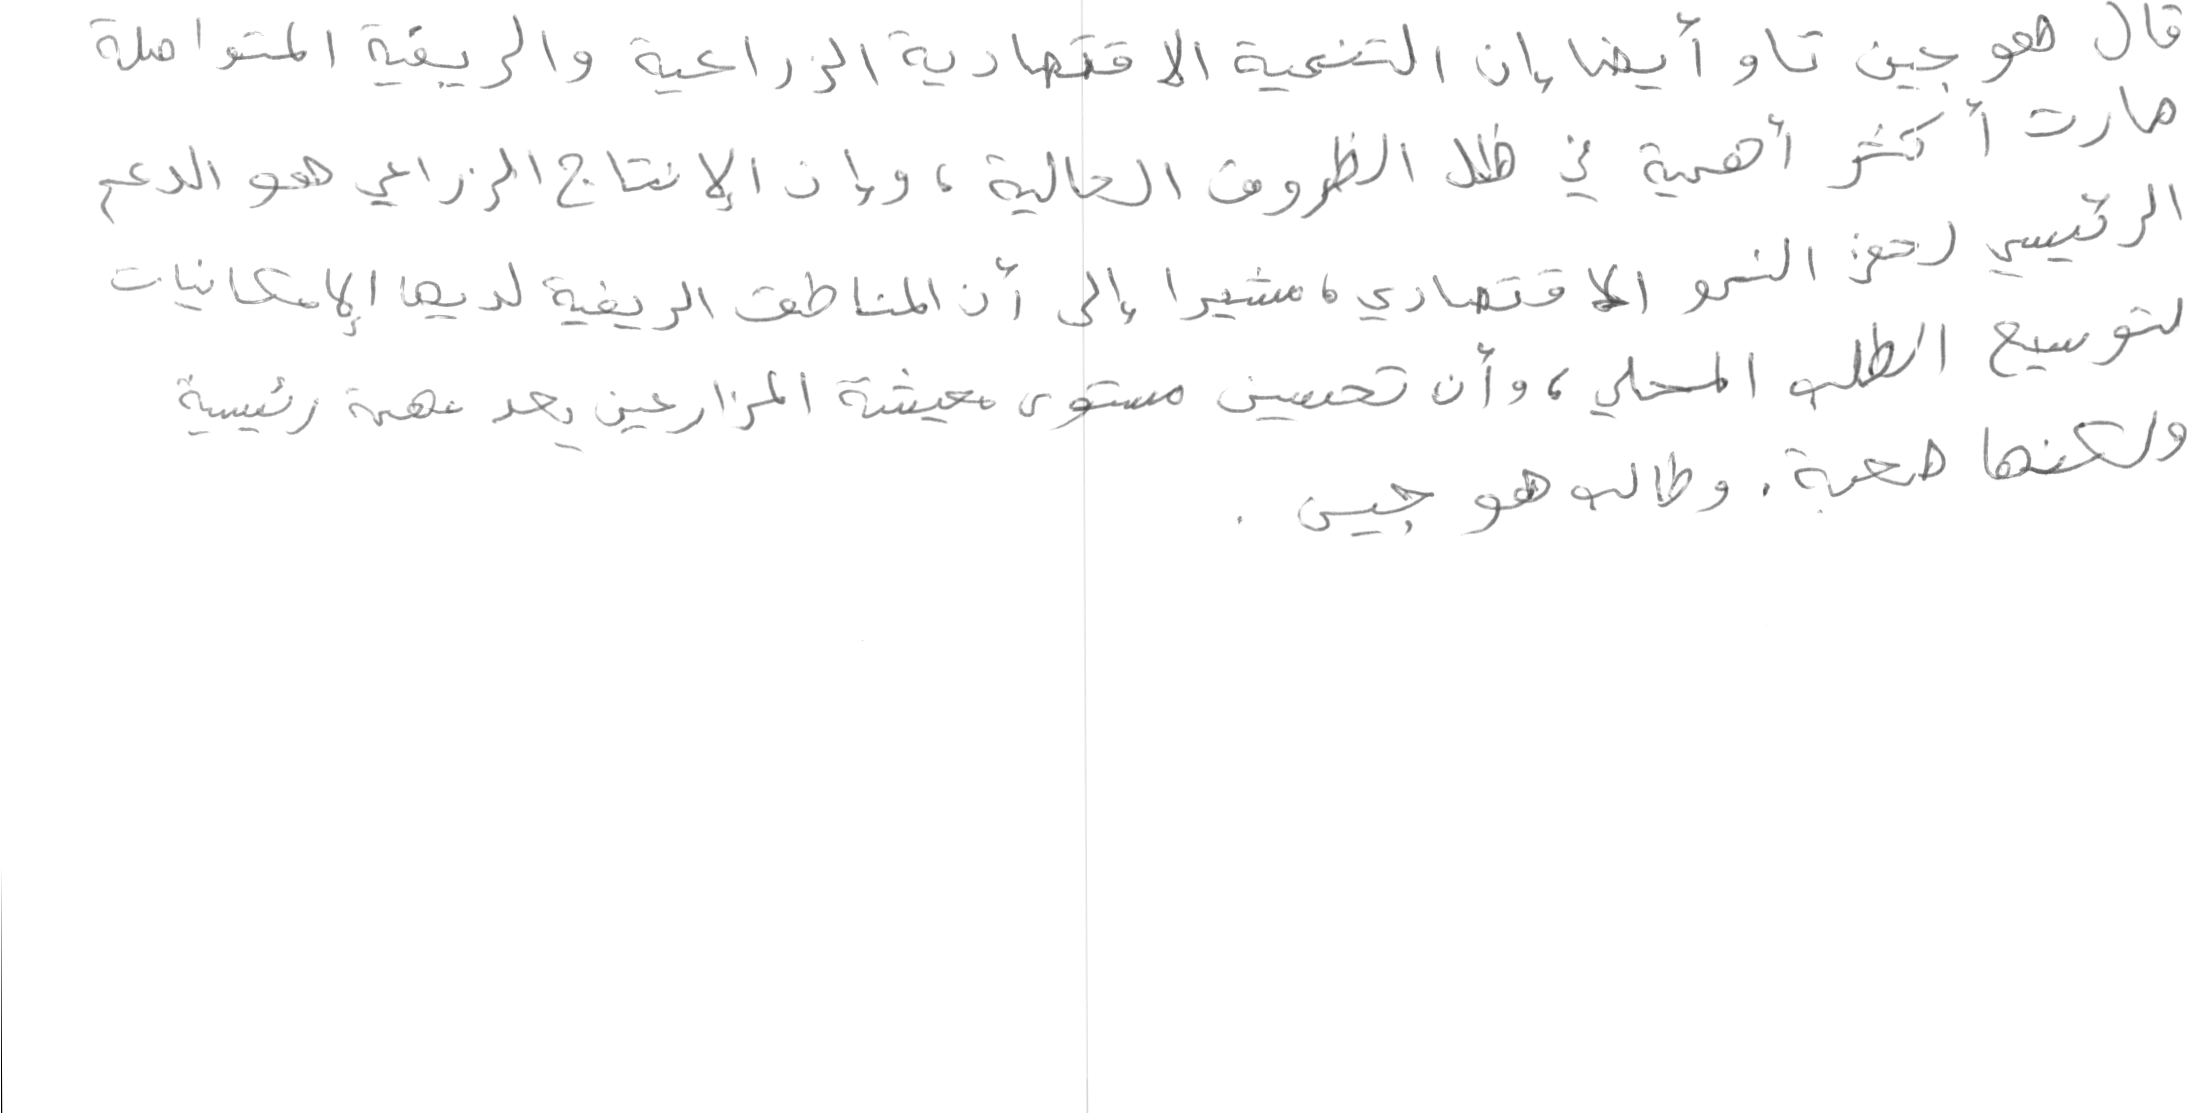 قال هو جين تاو أيضا إن التنمية الاقتصادية الزراعية والريفية المتواصلة
صارت أكثر أهمية في ظل الظروف الحالية، وإن الإنتاج الزراعي هو الدعم
الرئيسي لحفز النمو الاقتصادي، مشيرا إلى أن المناطق الريفية لديها الإمكانيات
لتوسيع الطلب المحلي، وأن تحسين مستوى معيشة المزارعين يعد مهمة رئيسية
ولكنها صعبة. وطالب هو جين .